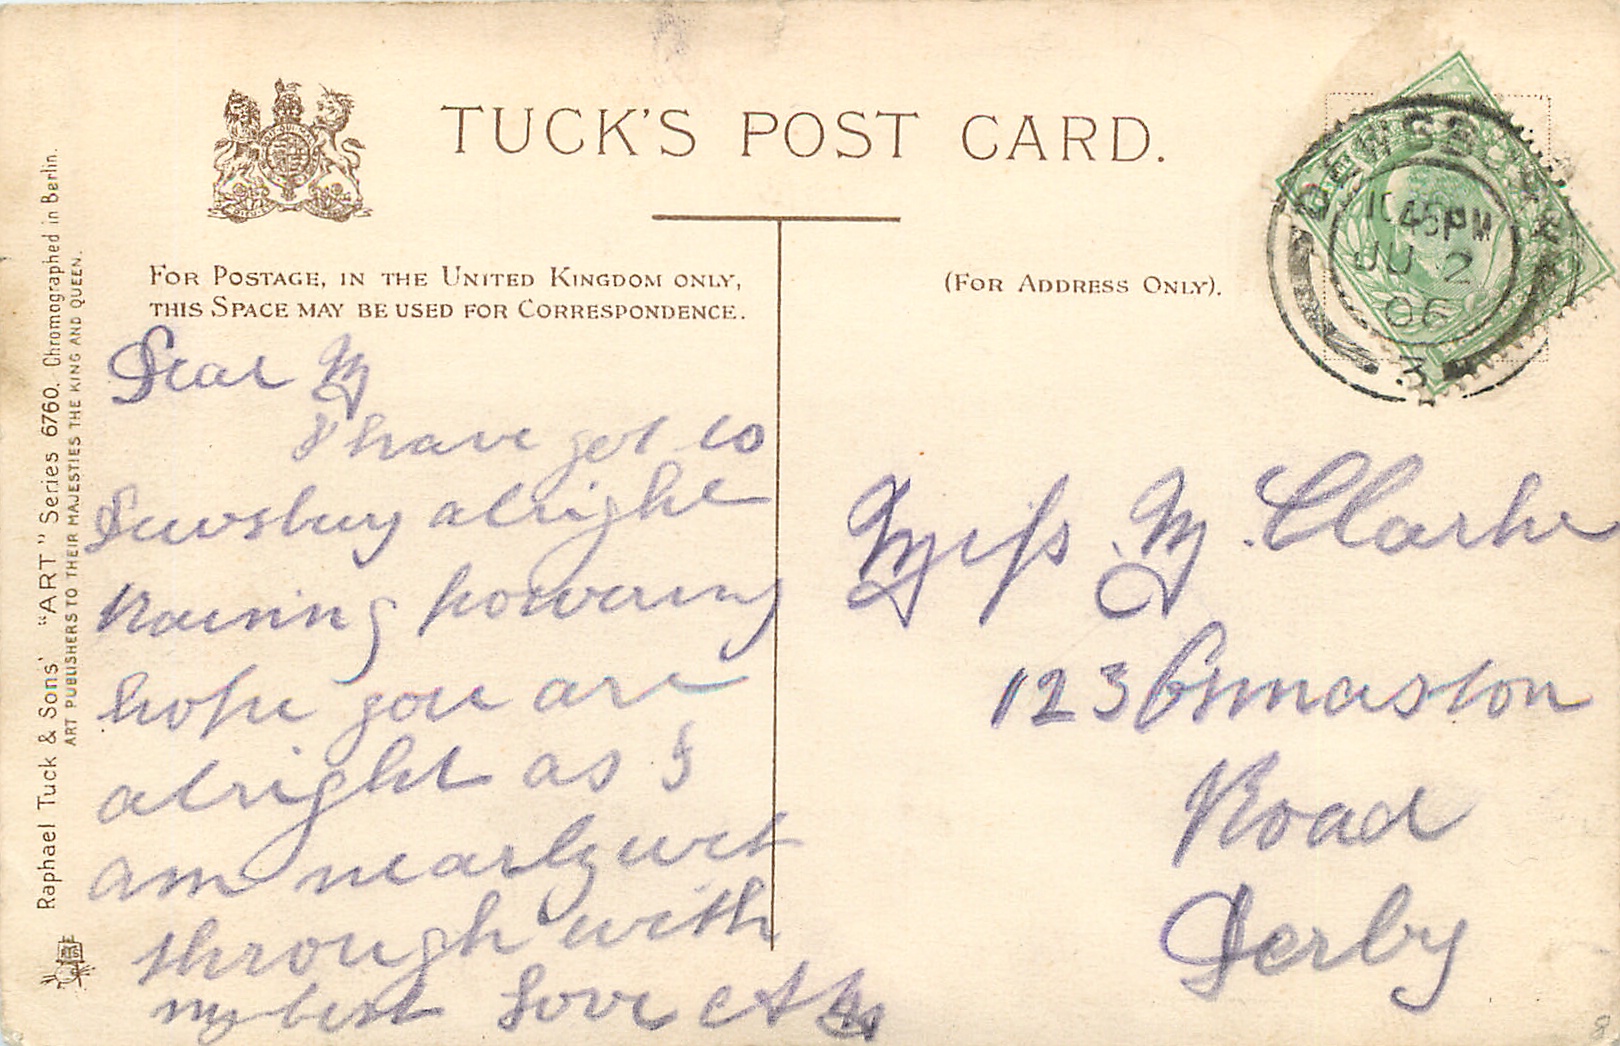 TUCK'S POST CARD.
FOR POSTAGE, IN THE UNITED KINGDOM ONLY,
THIS SPACE MAY BE USED FOR CORRESPONDENCE.
(FOR ADDRESS ONLY).
DEWSBURY
10 45 PM
JU 2
06
3
Dear M
I have got to
Dewsbury alright
Raining
hope you are
alright as I
am nearly wet
through with
my best Love
Miss . M . Clarke
123 Osmaston
Road
Derby
Raphael Tuck & Sons' "ART" Series 6760. Chromographed in Berlin.
ART PUBLISHERS TO THEIR MAJESTIES THE KING AND QUEEN.
8